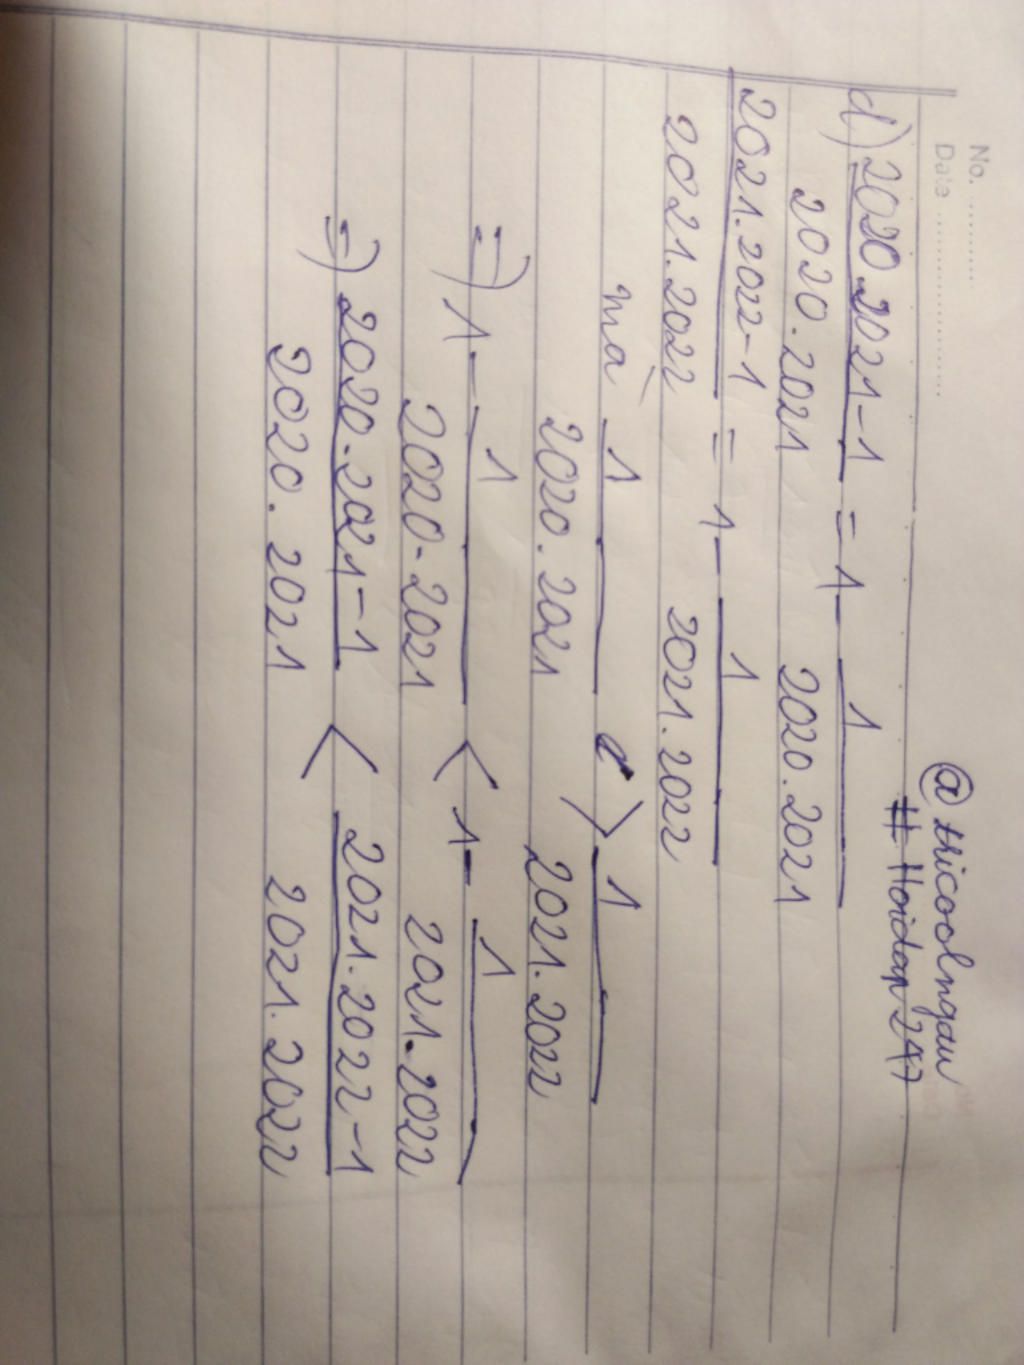 No. ............
Date ........................
@thicoolngau
# Hoidap 247
d) 2020.2021-1 = 1 - 1
2020.2021 2020.2021
2021.2022-1 = 1 - 1
2021.2022 2021.2022
mà 1 > 1
2020.2021 2021.2022
=) 1 - 1 < 1 - 1
2020.2021 2021.2022
=) 2020.2021-1 < 2021.2022-1
2020.2021 2021.2022